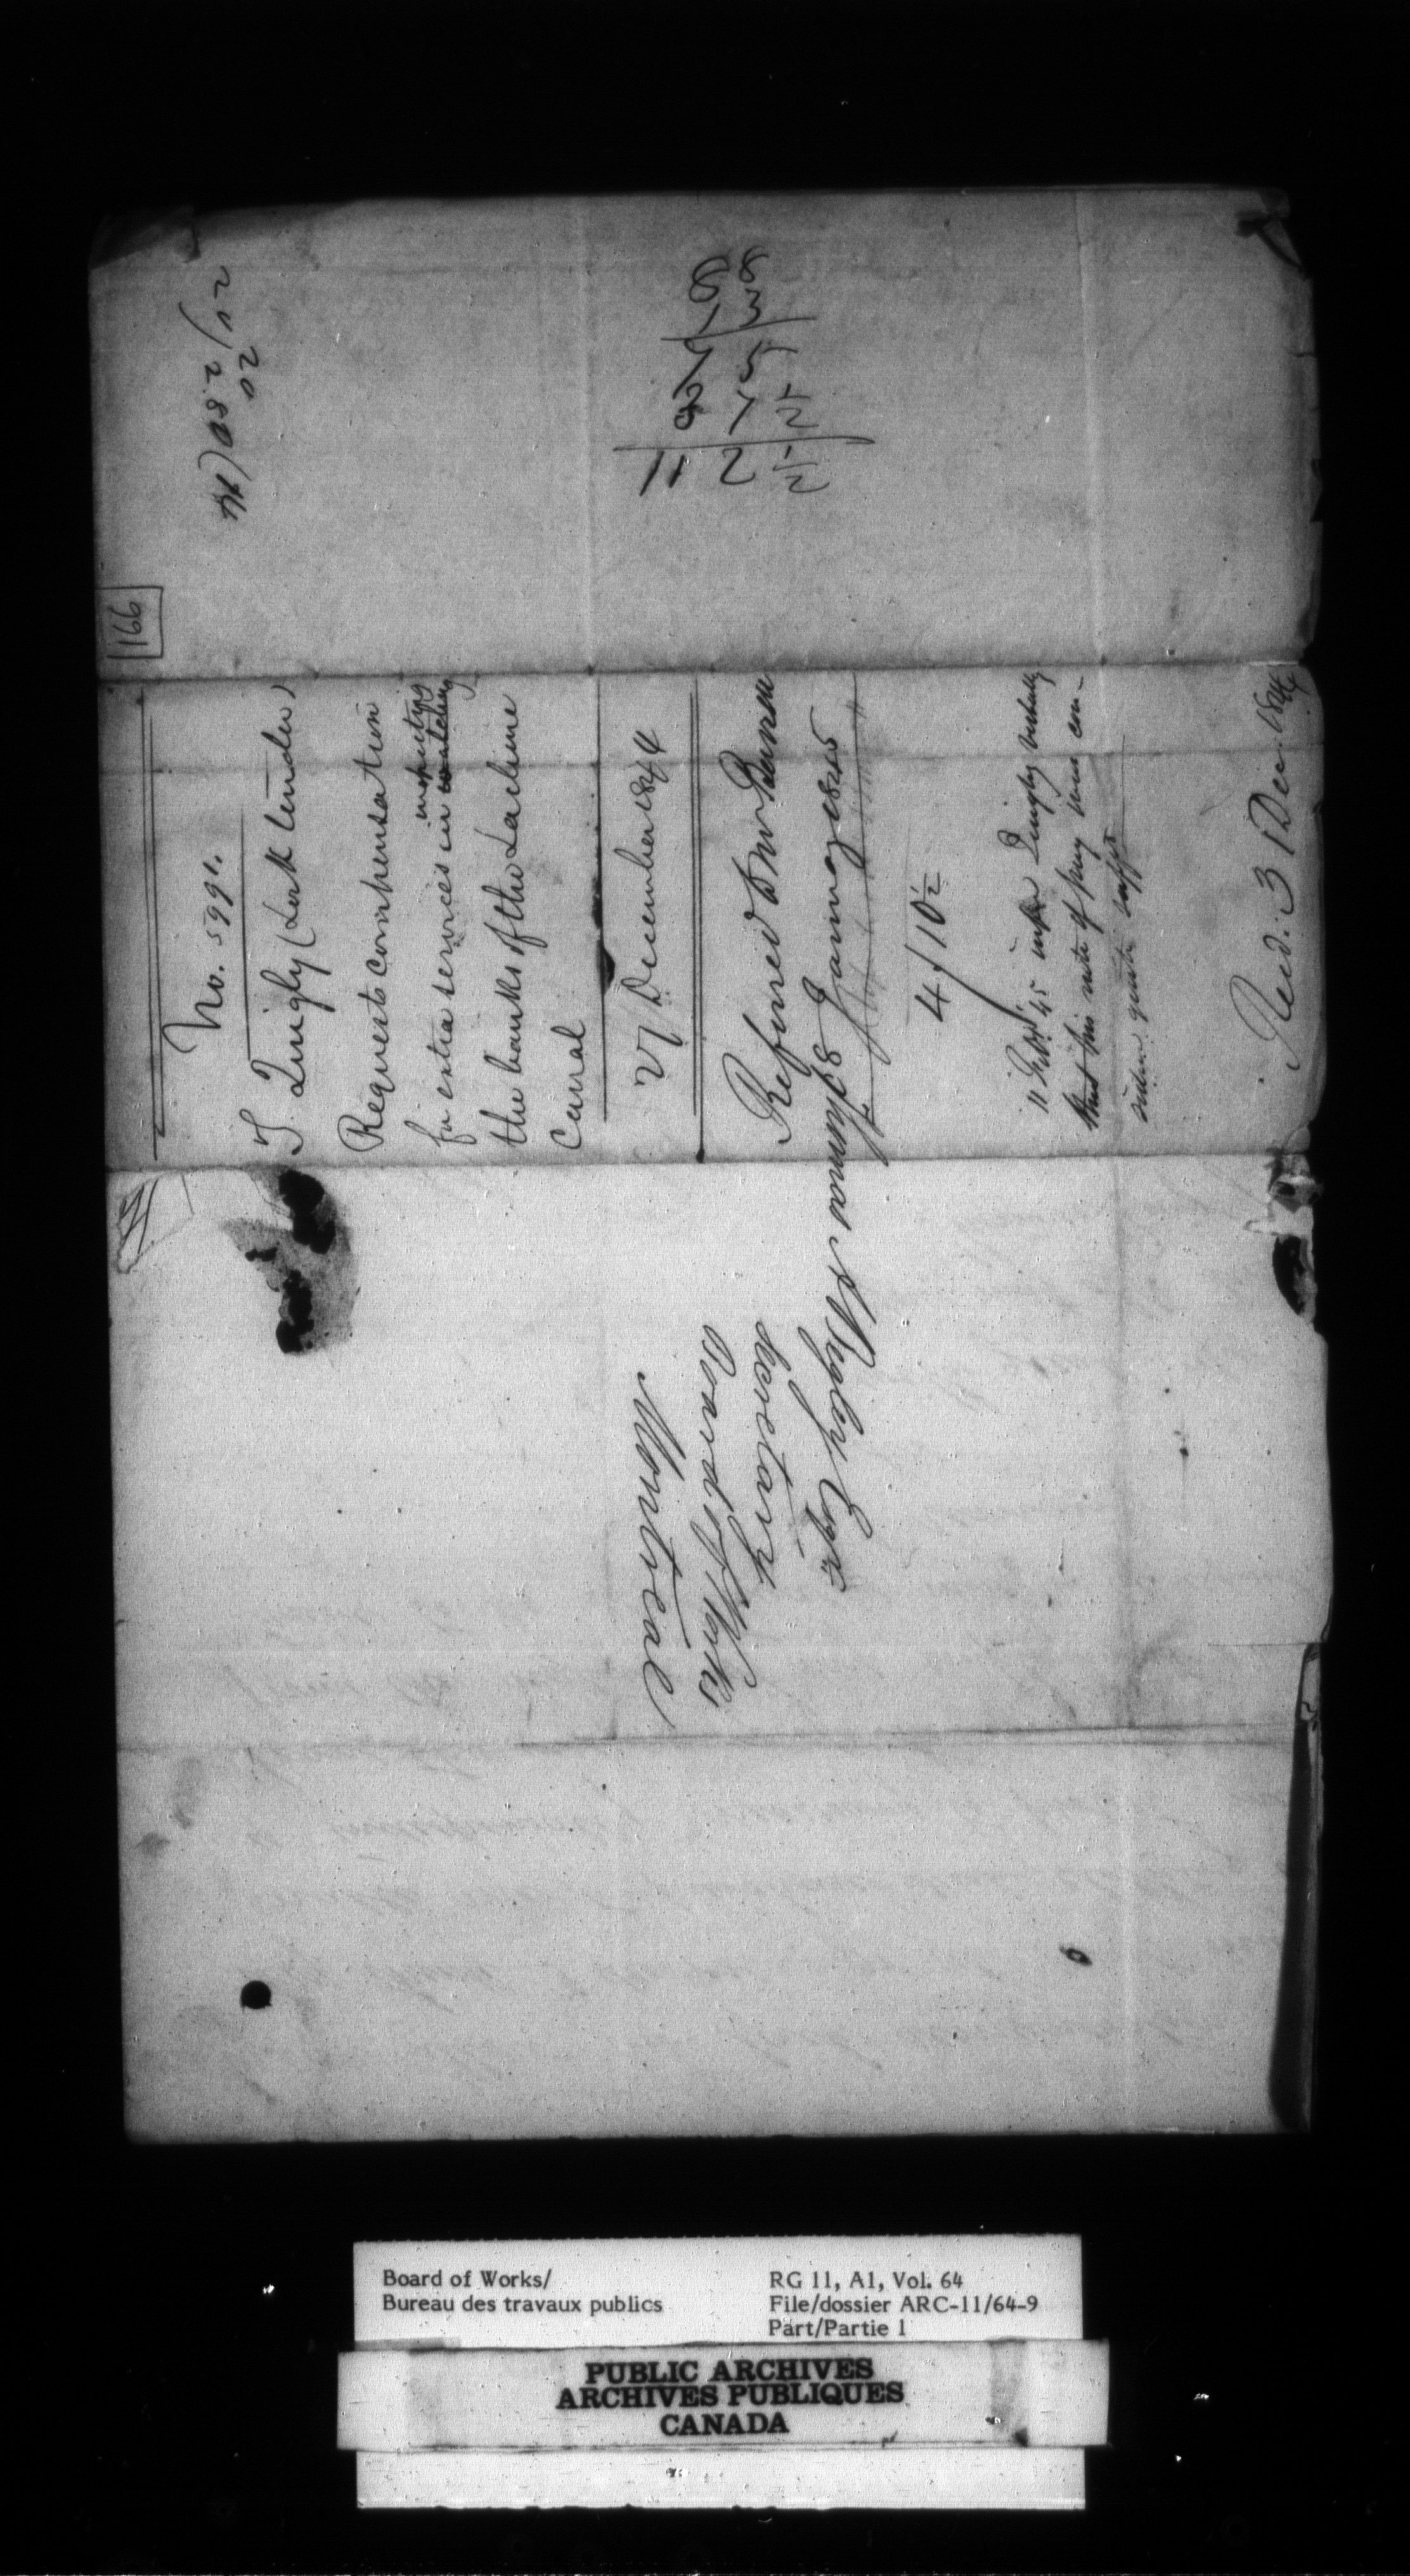 88
13
75
37 1/2
112 1/2
20
166
No. 5991.
T. Quigly (Lock tender)
Requests compensation
inspecting
for extra services in watching
the banks of the Lachine
Canal
27 December 1844
Referred to Mr
8 January 1845
4/10 1/2
11 Feby. 45 Quigly verbally
that his rate of pay was con-
sidered quite sufft.
Recd. 31 Dec. 1844
Thomas A Begley Esqre
Secretary
Board of Works
Montreal
Board of Works/
Bureau des travaux publics
RG 11, A1, Vol. 64
File/dossier ARC-11/64-9
Part/Partie 1
PUBLIC ARCHIVES
ARCHIVES PUBLIQUES
CANADA